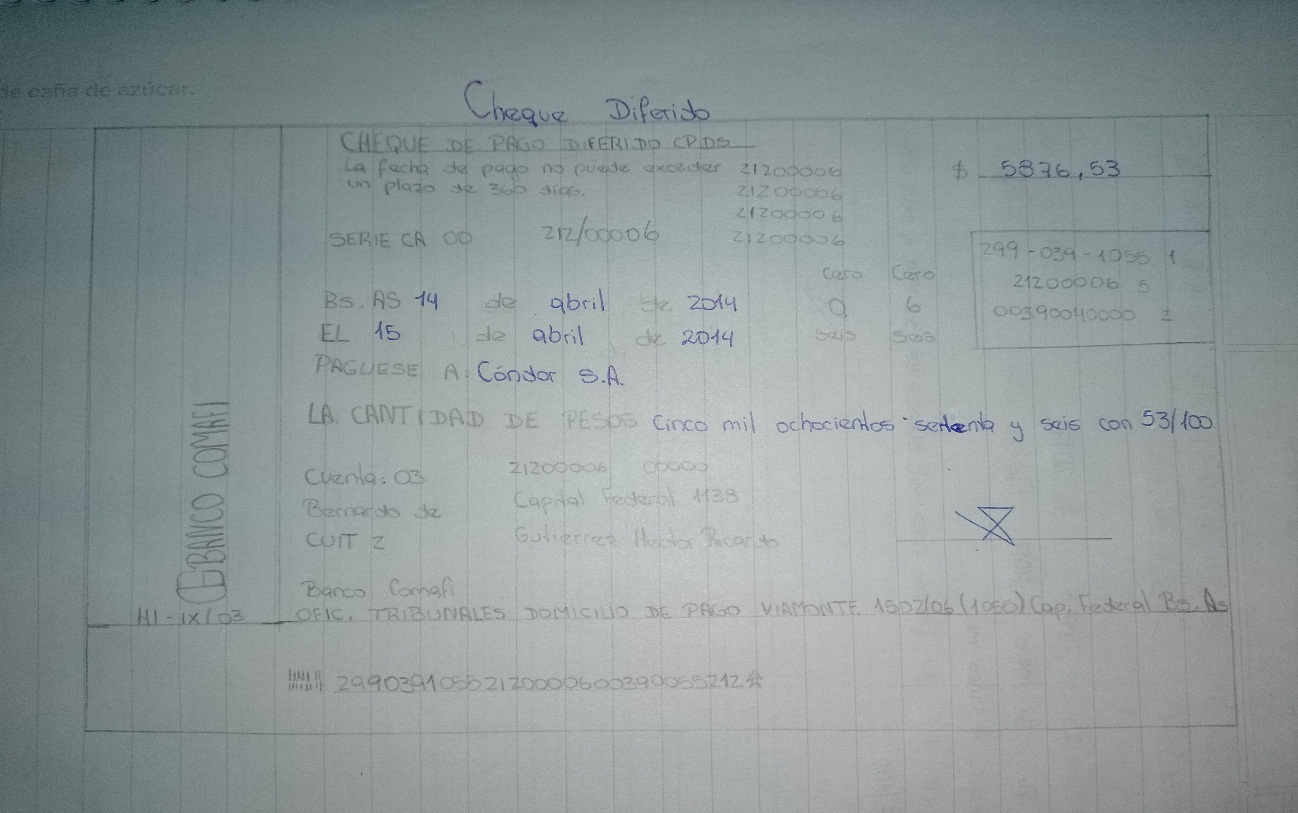 de caña de azúcar.
Cheque Diferido
CHEQUE DE PAGO DIFERIDO CPDS
La fecha de pago no puede exceder 21200006 $ 5876,53
un plazo de 360 días. 21200006
21200006
SERIE CA 00 212/00006 21200006
299-039-1055 1
cero cero 21200006 5
Bs. AS 14 de abril de 2014 0 6 00390040000 2
EL 15 de abril de 2014 seis seis
PAGUESE A: Cóndor S.A.
LA CANTIDAD DE PESOS Cinco mil ochocientos setenta y seis con 53/100
BANCO COMAFI
Cuenta: 03 21200006 00000
Bernardo de Capital Federal 1138
CUIT 2 Gutierrez Hector Ricardo
Banco Comafi
HI-IX/03 OFIC. TRIBUNALES DOMICILIO DE PAGO VIAMONTE 1502/06 (1050) Cap. Federal Bs. As
29903910552120000600390055212